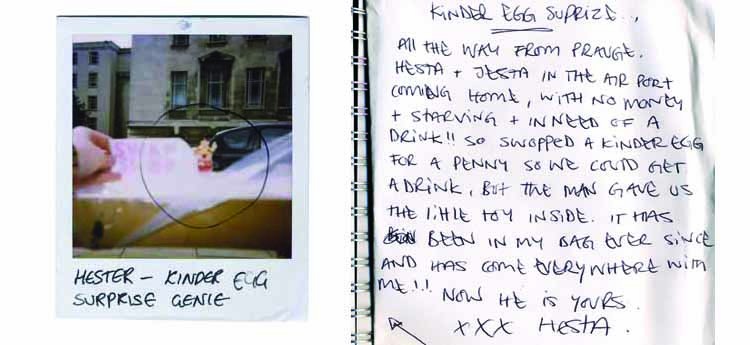 HESTER – KINDER EGG
SURPRISE GENIE
KINDER EGG SUPRIZE...
All THE WAY FROM PRAUGE.
HESTA + JESTA IN THE AIR PORT
COMING HOME, WITH NO MONEY
+ STARVING + IN NEED OF A
DRINK!! SO SWOPPED A KINDER EGG
FOR A PENNY SO WE COULD GET
A DRINK, BUT THE MAN GAVE US
THE little TOY INSIDE. IT HAS
BEEN IN MY BAG EVER SINCE
AND HAS COME EVERYWHERE WITH
ME!!!
NOW HE IS YOURS.
XXX HESTA.